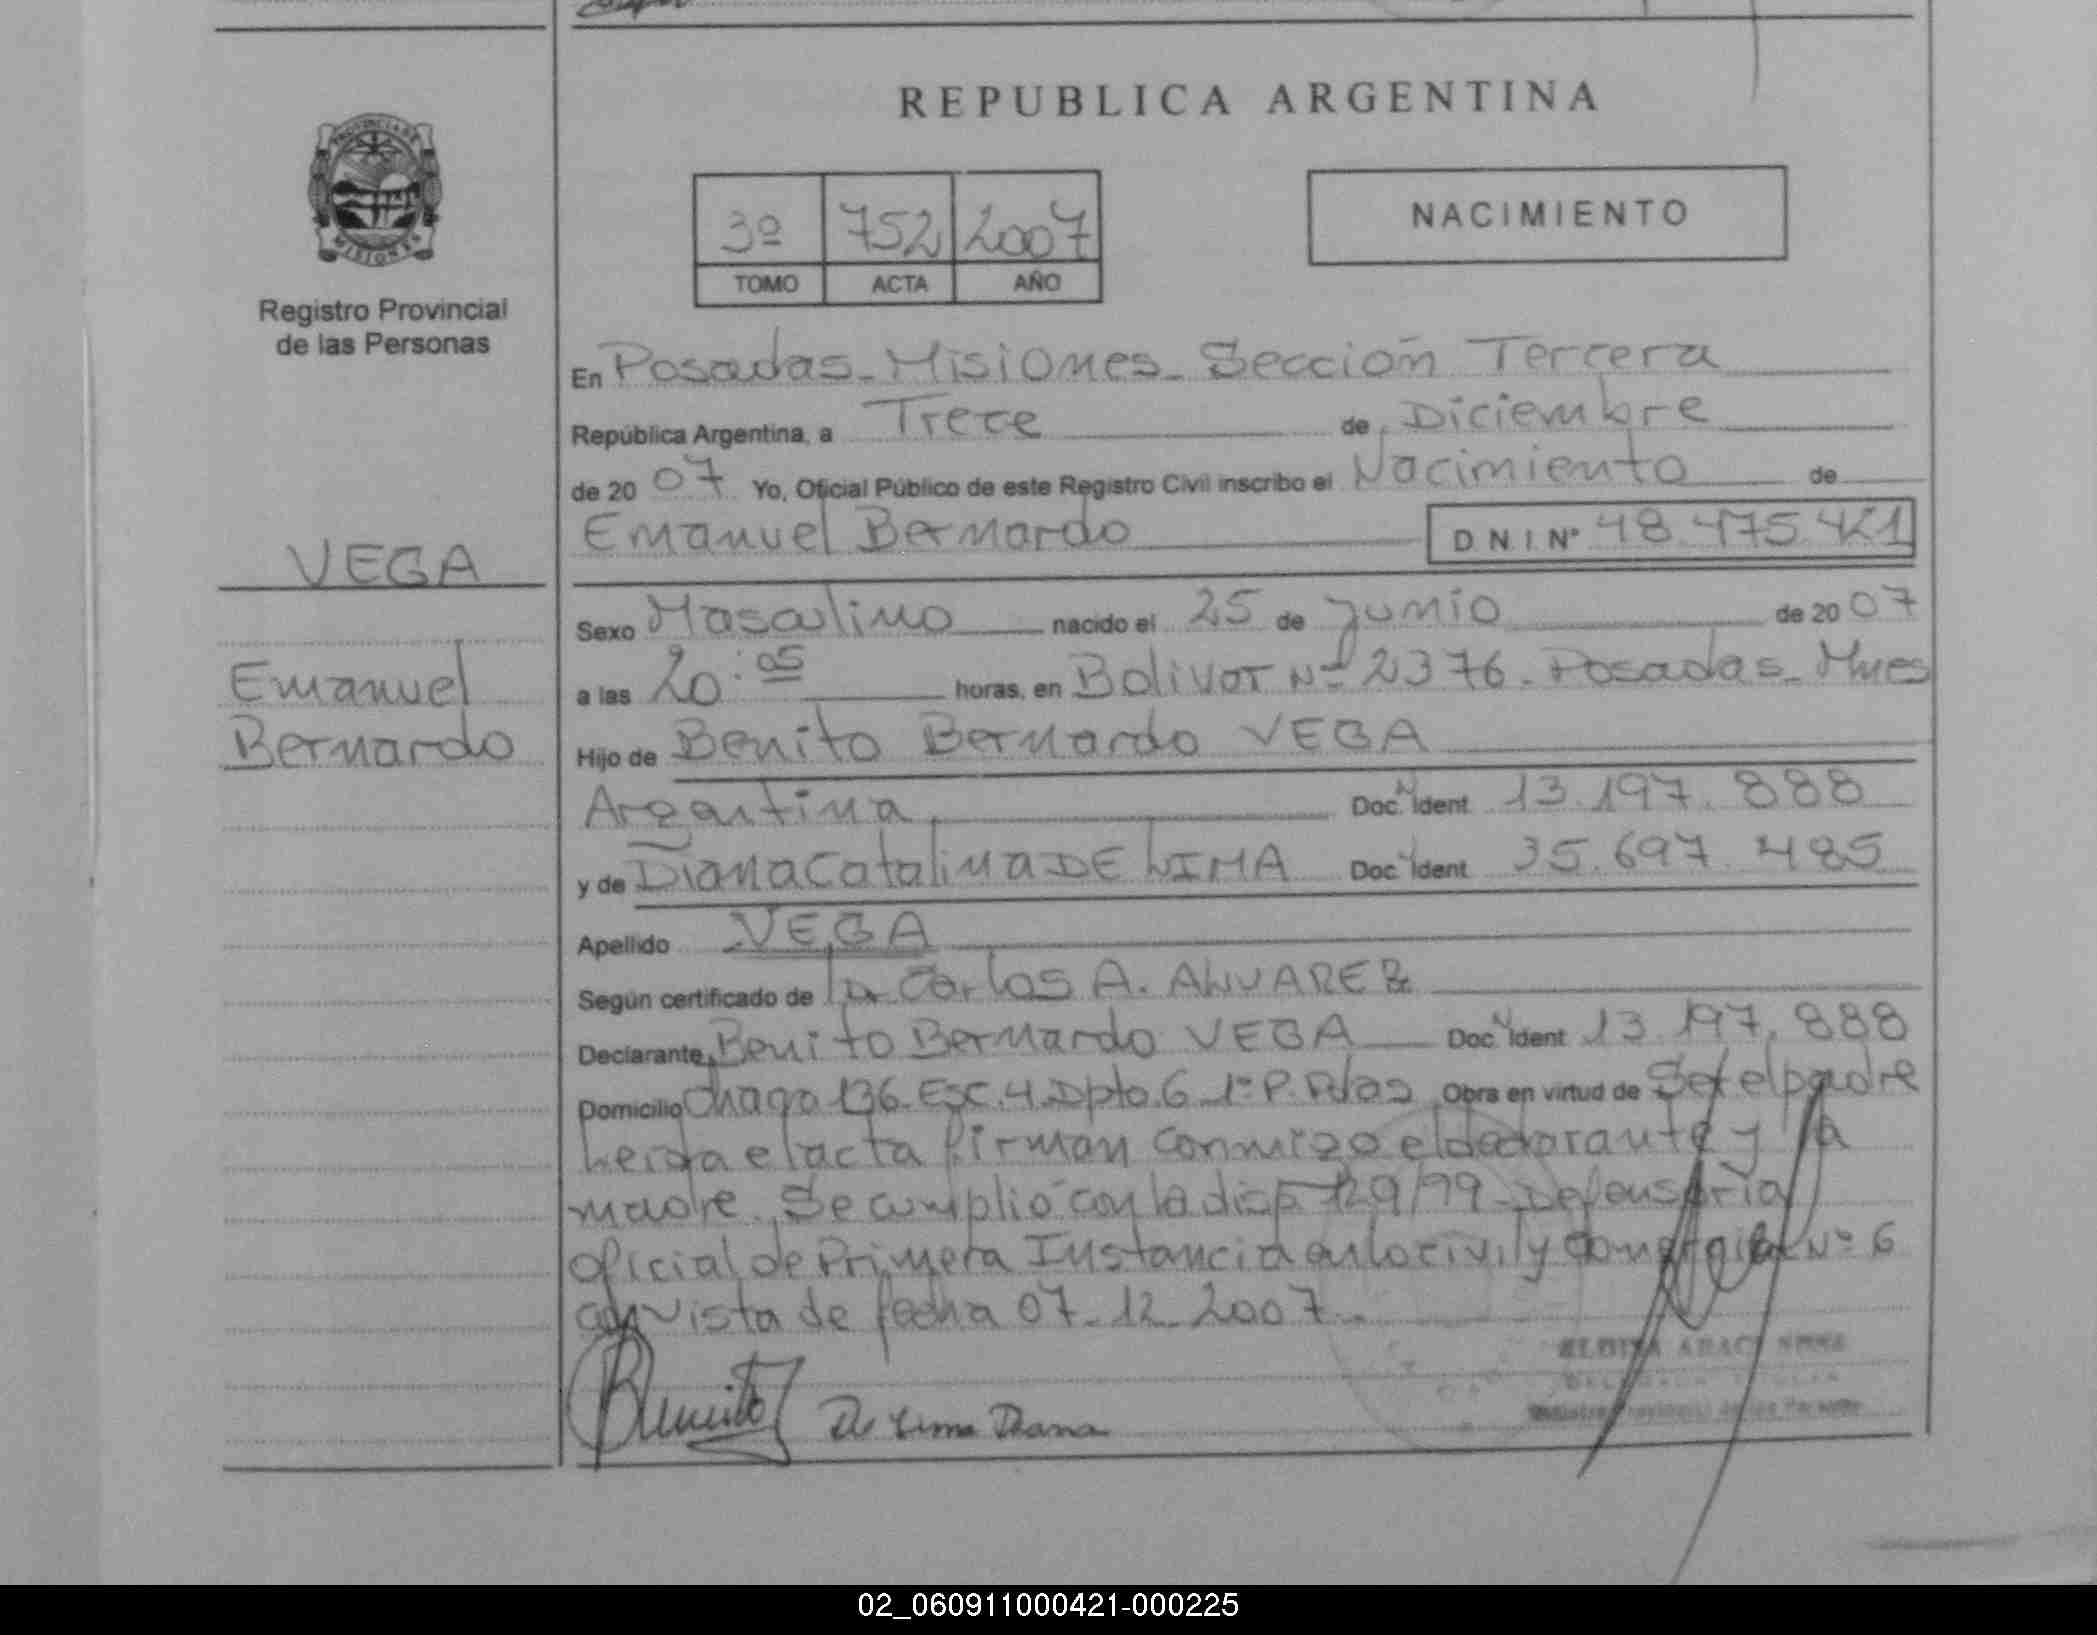 REPUBLICA ARGENTINA
PROVINCIA DE
MISIONES
Registro Provincial
de las Personas
3º 752 2007
TOMO ACTA AÑO
NACIMIENTO
En Posadas - Misiones - Sección Tercera
República Argentina, a Trece de Diciembre
de 20 07 Yo, Oficial Público de este Registro Civil inscribo el Nacimiento de
Emanuel Bernardo D.N.I. Nº 48.475.421
VEGA
Sexo Masculino nacido el 25 de Junio de 20 07
a las 20:05 horas, en Bolivar Nº 2376 - Posadas - Mnes
Emanuel
Bernardo
Hijo de Benito Bernardo VEGA
Argentina Doc. Ident 13.197.888
y de Diana Catalina DE LIMA Doc. Ident 35.697.485
Apellido VEGA
Según certificado de Dr Carlos A. ALVAREZ
Declarante Benito Bernardo VEGA Doc. Ident 13.197.888
Domicilio 136 Esc. 4 Dpto. 6 1º P. Pdas Obra en virtud de Ser el padre
Leida el acta firman conmigo el declarante y la
madre. Se cumplió con la disp 129/99 - Defensoria
Oficial de Primera Instancia en lo civil y Comercial Nº 6
con vista de fecha 07-12-2007.
Benito De Lima Diana
02_060911000421-000225